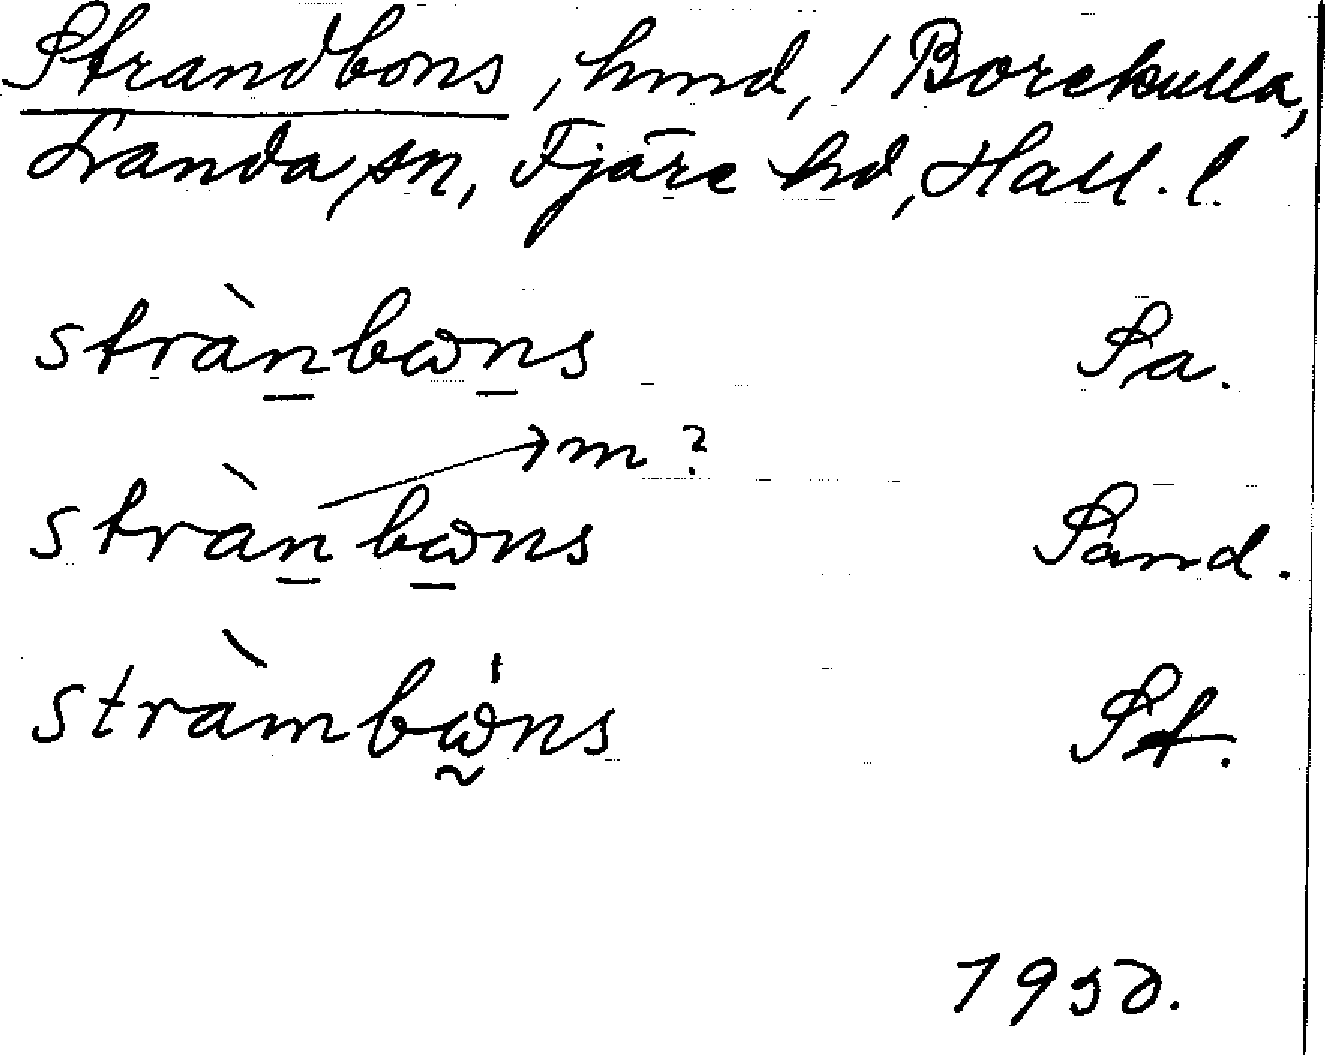 Strandbons, hmd, 1 Borekulla,
Landa sn, Fjäre hd, Hall. l.
strànbɷns Sa.
→m?
strànbɷns Sand.
stràmbɷ̀ns St.
1930.